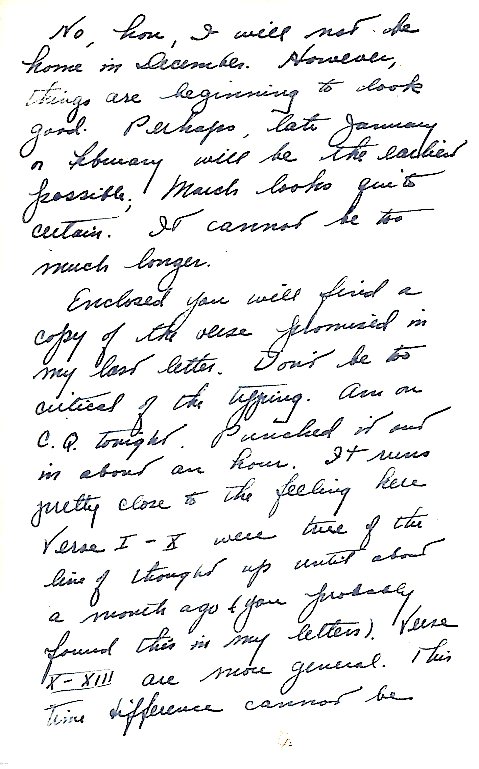 No, hon, I will not be
home in December. However,
things are beginning to look
good. Perhaps, late January
or february will be the earliest
possible; March looks quite
certain. It cannot be too
much longer.
Enclosed you will find a
copy of the verse promised in
my last letter. Don't be too
critical of the typing. Am on
C.Q. tonight. Punched it out
in about an hour. It runs
pretty close to the feeling here
Verse I - X were true of the
line of thought up until about
a month ago (you probably
found this in my letters). Verse
X - XIII are more general. This
time difference cannot be